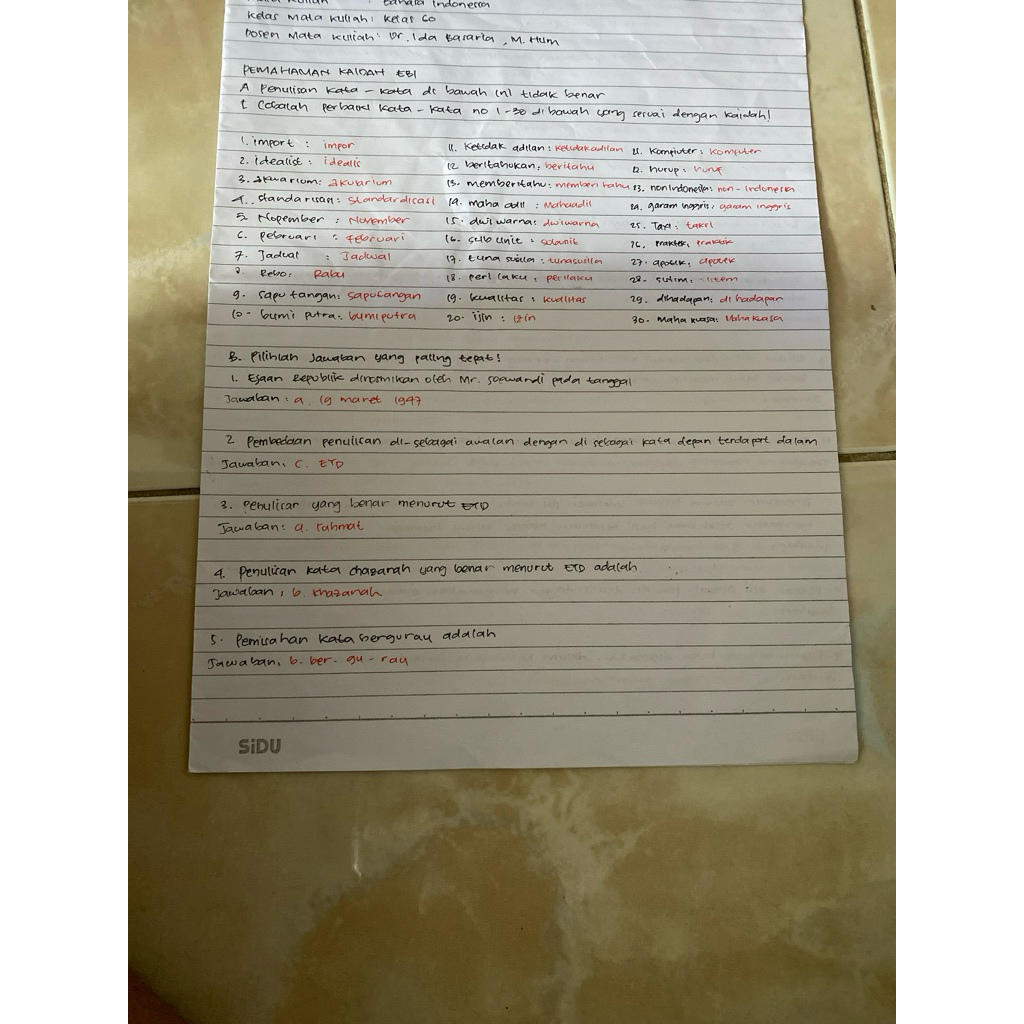 : Bahasa Indonesia
Kelas Mata Kuliah : Kelas 60
Dosen Mata Kuliah : Dr. Ida Basaria, M. Hum
PEMAHAMAN KAIDAH EBI
A Penulisan kata - kata di bawah ini tidak benar
1 Cobalah perbaiki kata - kata no 1-30 di bawah yang sesuai dengan kaidah!
1. import : impor 11. Ketidak adilan : ketidakadilan 21. Komputer : Komputer
2. idealist : idealis 12 beritahukan : beritahu 22. hurup : huruf
3. Akwarium : akuarium 13. memberitahu : memberi tahu 23. nonIndonesia : non-Indonesia
4. standarisasi : standardisasi 14. maha adil : Mahaadil 24. garam inggris : garam inggris
5. Nopember : November 15. dwi warna : dwiwarna 25. Taksi : taksi
6. Pebruari : Februari 16. sub unit : subunit 26. praktek, praktik
7. Jadual : Jadwal 17. tuna susila : tunasusila 27. apotik : apotek
8. Rebo : Rabu 18. peri laku : perilaku 28. sistim :
9. sapu tangan : saputangan 19. kwalitas : kualitas 29. dihadapan : di hadapan
10. bumi putra : bumiputra 20. ijin : izin 30. maha kuasa : Mahakuasa
B. Pilihlah Jawaban yang paling tepat!
1. Ejaan Republik diresmikan oleh Mr. Soewandi pada tanggal
Jawaban : a. 19 maret 1947
2 Pembedaan penulisan di- sebagai awalan dengan di sebagai kata depan terdapat dalam
Jawaban : C. EYD
3. Penulisan yang benar menurut EYD
Jawaban : a. rahmat
4. Penulisan kata chazanah yang benar menurut EYD adalah
Jawaban : b. khazanah
5. Pemisahan kata bergurau adalah
Jawaban : b. ber - gu - rau
SiDU